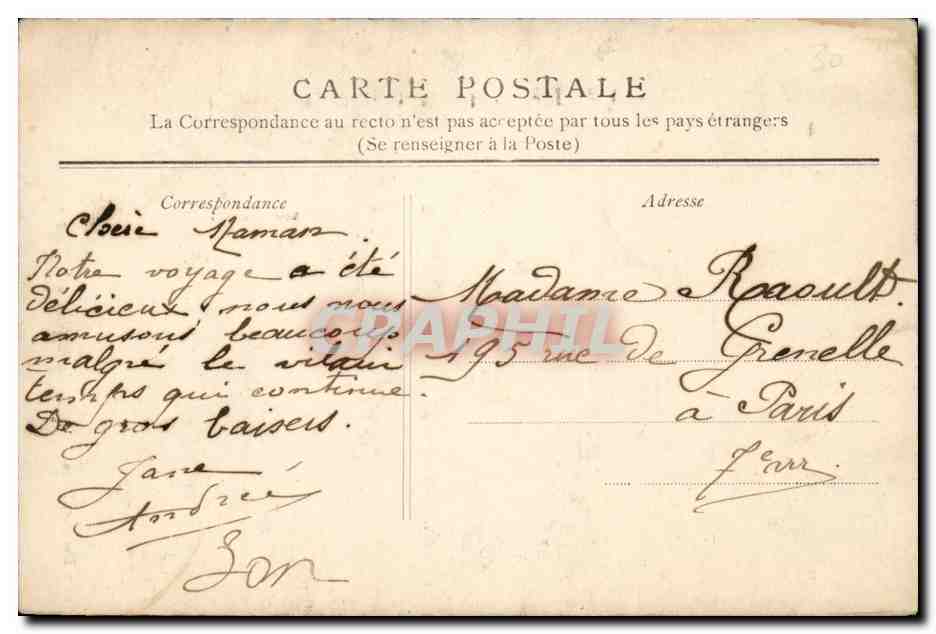 30
CARTE POSTALE
La Correspondance au recto n'est pas acceptée par tous les pays étrangers
(Se renseigner à la Poste)
Correspondance
Chère Maman.
Notre voyage a été
délicieux nous nous
amusons beaucoup
malgré le vilain
temps qui continue.
De gros baisers.
Jane
Andrée
Adresse
Madame Raoult.
195 rue de Grenelle
à Paris
7e
CPAPHIL